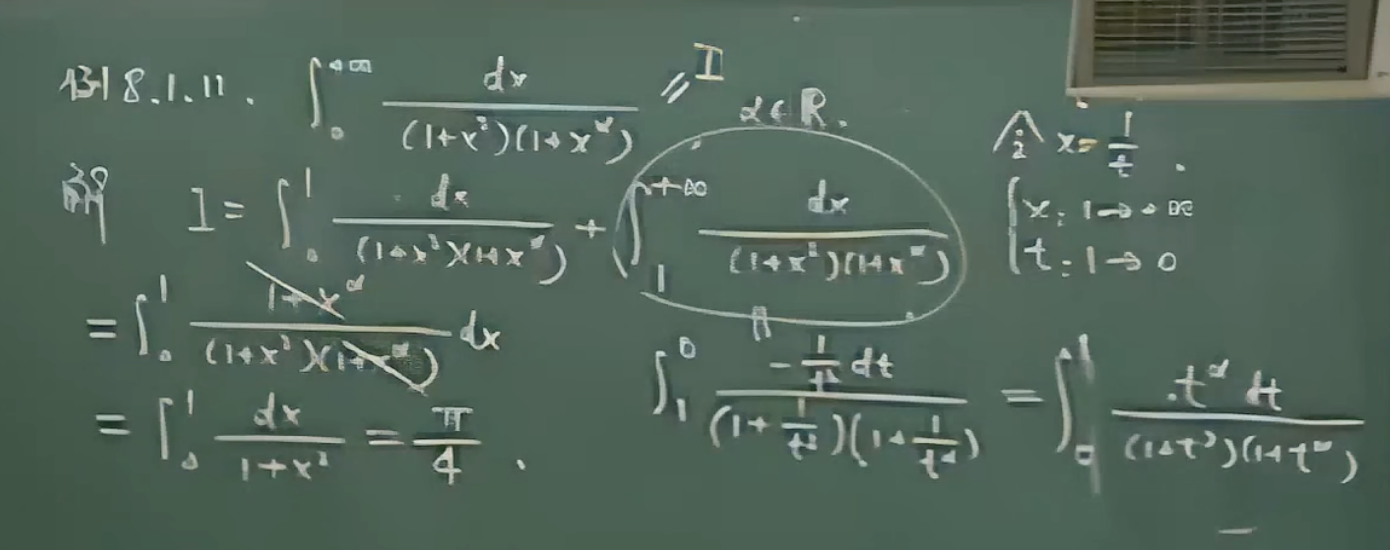 例 8.1.11. ∫₀^{+∞} dx / ((1+x²)(1+x^α)) = I α∈R.
解 I = ∫₀¹ dx / ((1+x²)(1+x^α)) + ∫₁^{+∞} dx / ((1+x²)(1+x^α))
= ∫₀¹ (1+x^α) / ((1+x²)(1+x^α)) dx
= ∫₀¹ dx / (1+x²) = π/4 .
令 x = 1/t .
{ x: 1→+∞
t: 1→0
∫₁⁰ (-1/t² dt) / ((1+1/t²)(1+1/t^α)) = ∫₀¹ t^α dt / ((1+t²)(1+t^α))